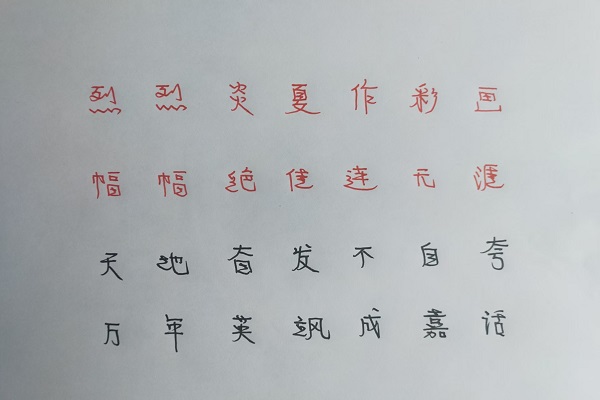 烈烈炎夏作彩画
幅幅绝佳连无涯
天地奋发不自夸
万年英飒成嘉话